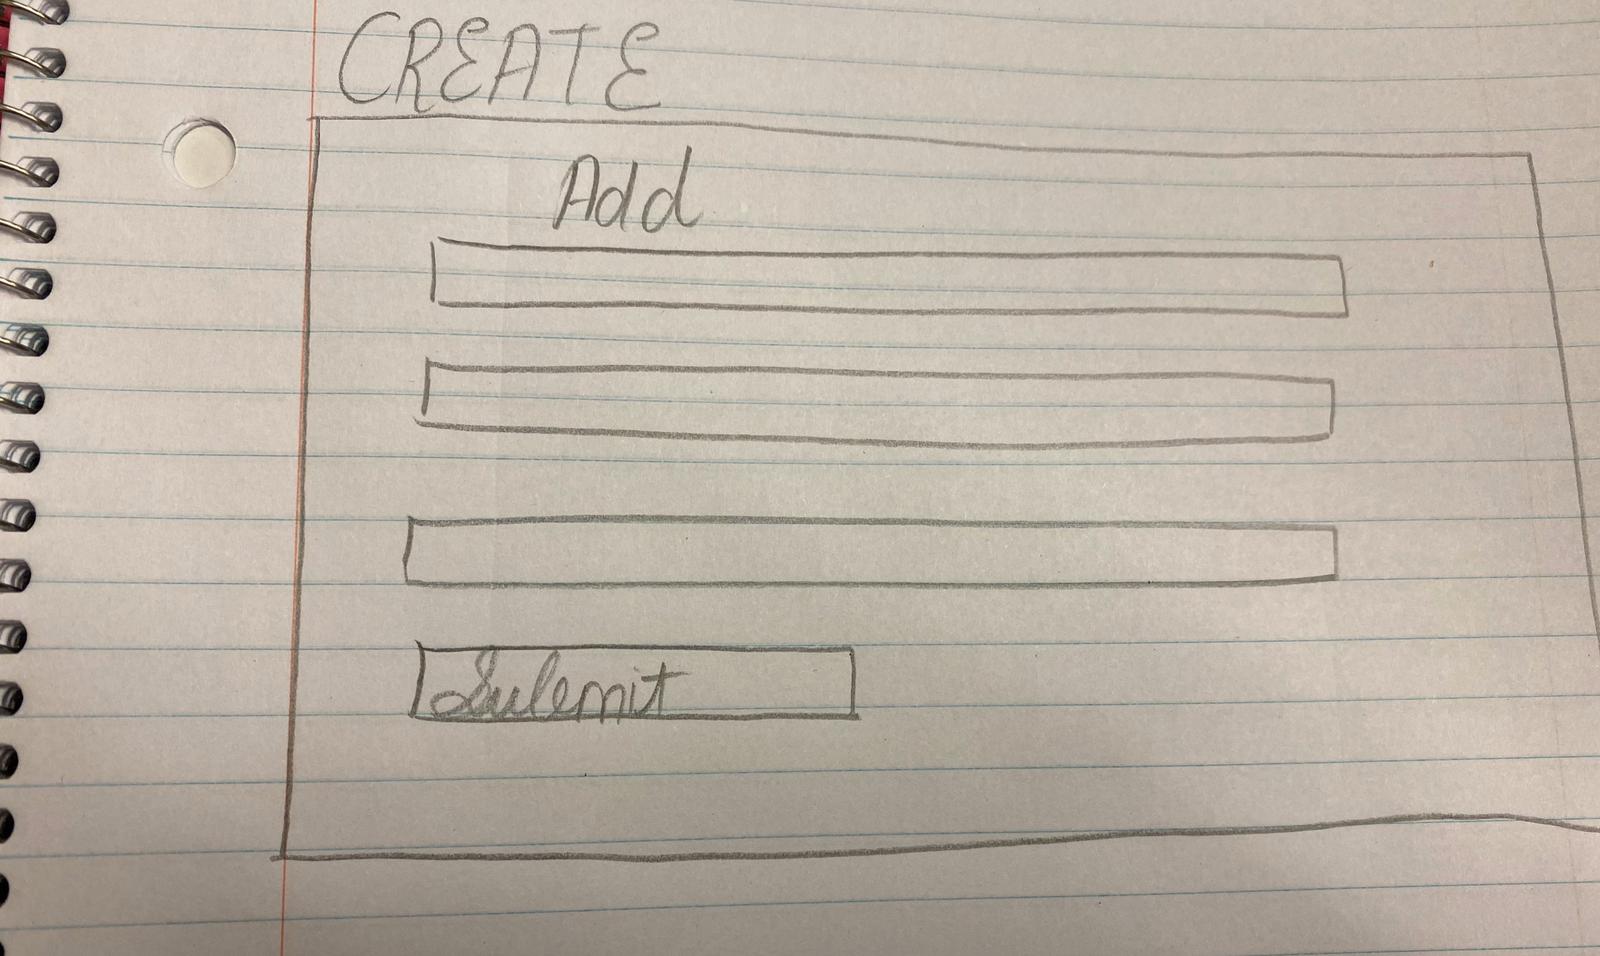 CREATE
Add
Submit